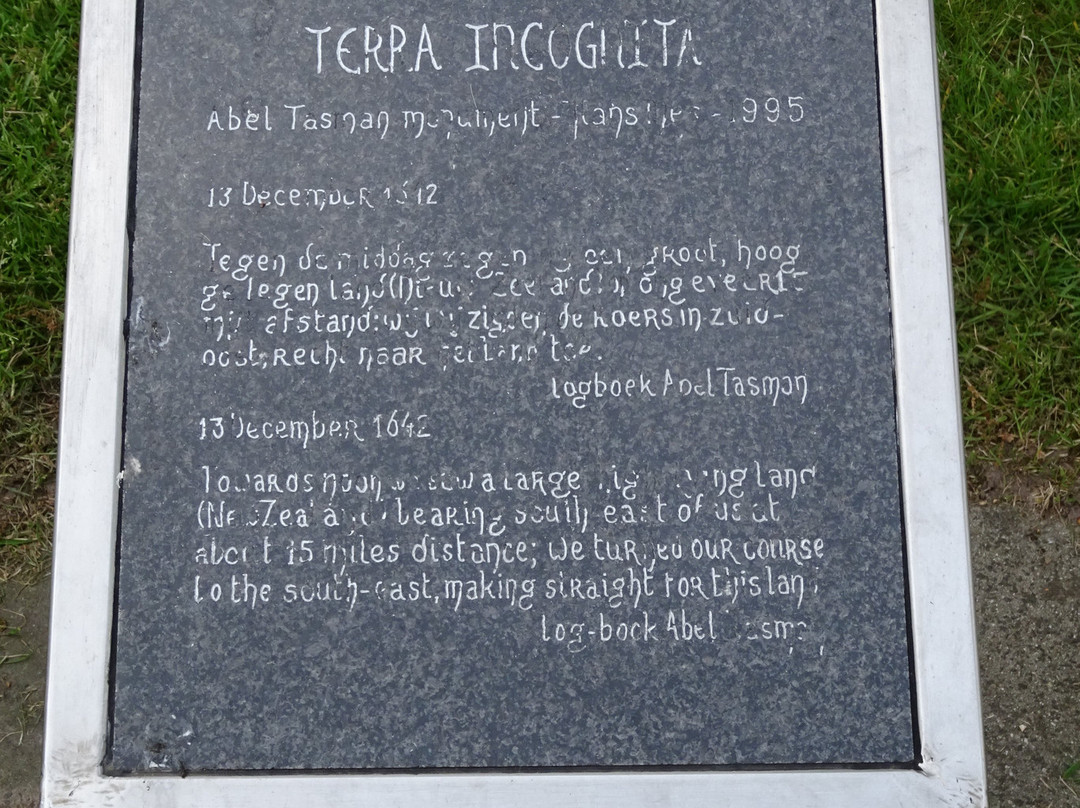 TERRA INCOGNITA
Abel Tasman monument - 1995
13 December 1642
Tegen de middag zagen groot, hoog
gelegen land (Nieuw Zeeland), ongeveer
mijl afstand: wij wijzigden de koers in zuid-
oost, recht naar toe.
logboek Abel Tasman
13 December 1642
Towards noon we saw a large high lying land
(New Zealand) bearing south east of us at
about 15 miles distance; we turned our course
to the south-east, making straight for this land
log-boek Abel Tasman